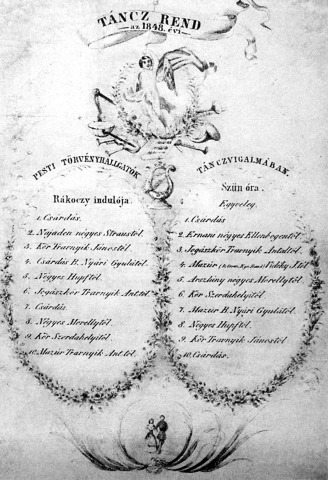 TÁNCZ REND
az 1848. évi
PESTI TÖRVÉNYHALLGATÓK
TÁNCZVIGALMÁBAN.
Rákoczy indulója.
1. Csárdás.
2. Najaden négyes Straustól.
3. Kör Travnyik Jánostól.
4. Csárdás B. Nyári Gyulától.
5. Négyes Hupftól.
6. Jogászkör Travnyik Ant.tól.
7. Csárdás.
8. Négyes Morellytól.
9. Kör Szerdahelyitól.
10. Mazur Travnyik Ant.tól.
Szün óra.
Egyveleg.
1. Csárdás
2. Ernani négyes Ellenbogentől.
3. Jogászkör Travnyik Antaltól.
4. Mazúr
5. Arszlány négyes Morellytól.
6. Kör Szerdahelyitól.
7. Mazur B. Nyári Gyulától.
8. Négyes Hupftól.
9. Kör Travnyik Jánostól
10. Csárdás.